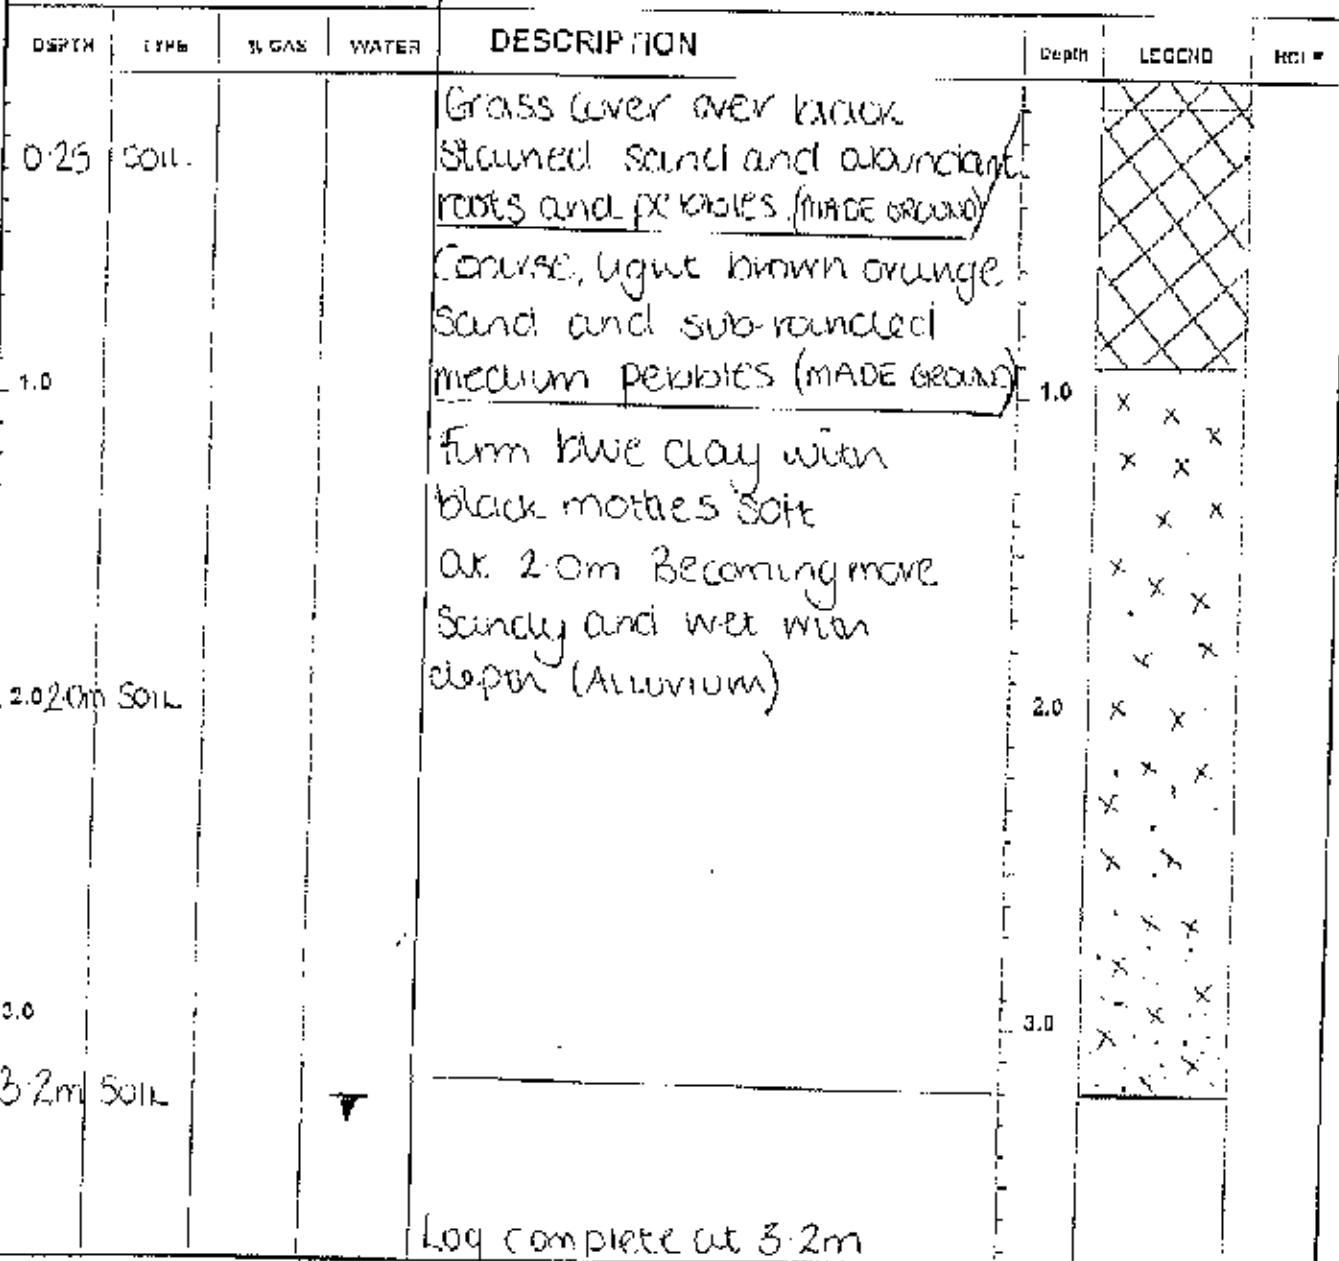 DEPTH TYPE % GAS WATER DESCRIPTION Depth LEGEND
Grass cover over black
0.25 SOIL. Stained sand and abundant
roots and pebbles (MADE GROUND)
Coarse, light brown orange
Sand and sub-rounded
1.0 medium pebbles (MADE GROUND) 1.0
Firm blue clay with
black mottles soft
at 2.0m Becoming more
Sandy and wet with
depth (ALLUVIUM)
2.0 2.0m SOIL 2.0
3.0 3.0
3.2m SOIL
Log complete at 3.2m